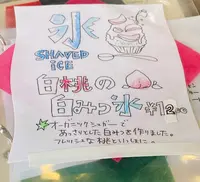 氷
SHAVED
ICE
白桃の
白みつ氷 ¥1200
★オーガニックシュガーで
あっさりとした白みつを作りました。
フレッシュな桃といっしょに。